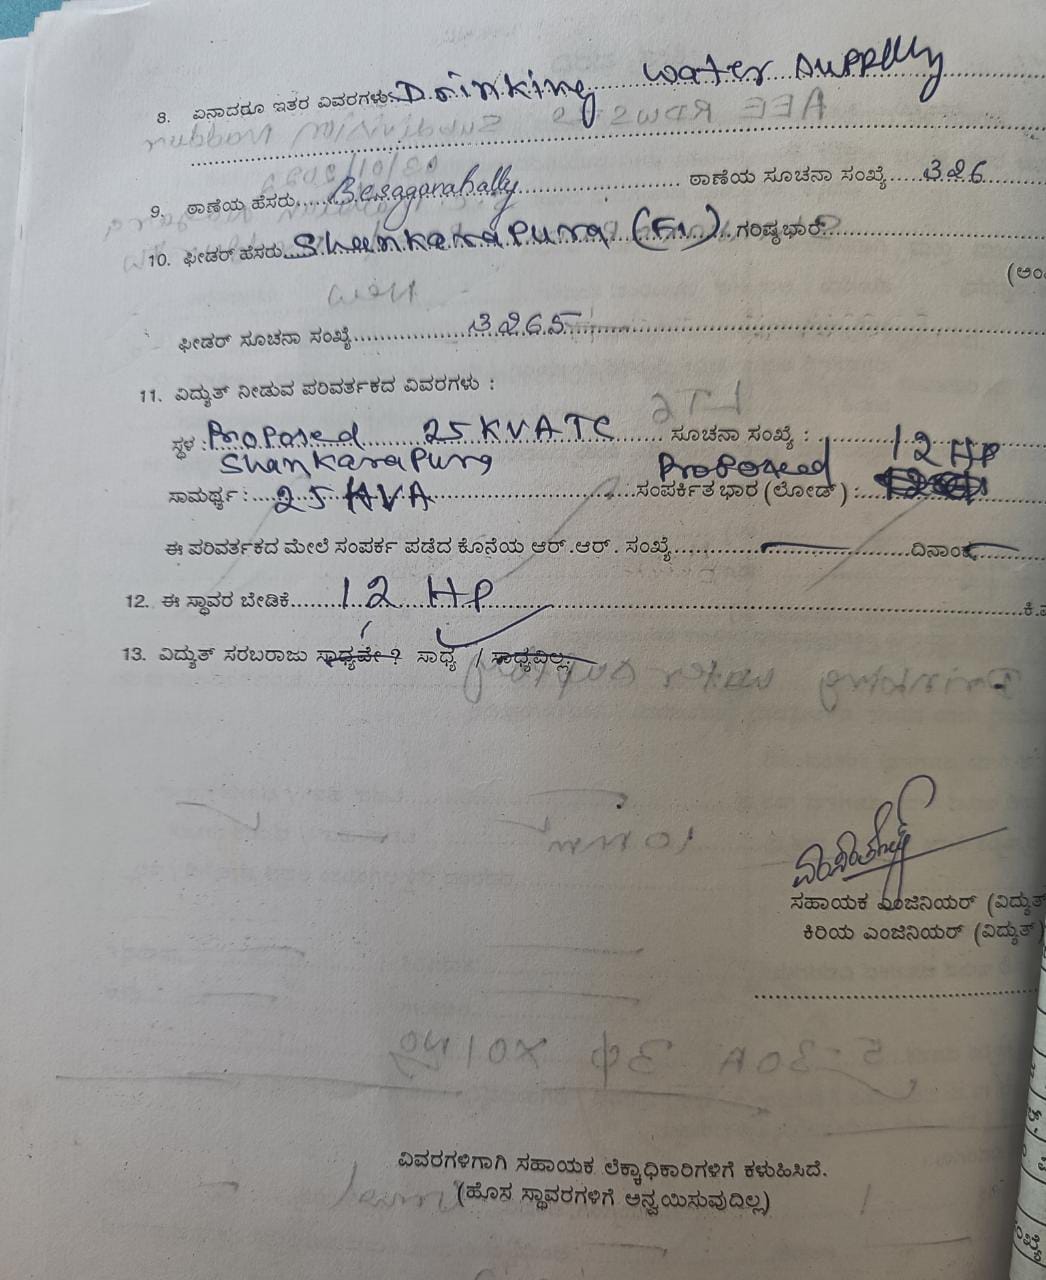 8. ಏನಾದರೂ ಇತರ ವಿವರಗಳು: Drinking water supply
9. ಠಾಣೆಯ ಹೆಸರು Besagarahally ಠಾಣೆಯ ಸೂಚನಾ ಸಂಖ್ಯೆ
10. ಫೀಡರ್ ಹೆಸರು Shankarapura ಗರಿಷ್ಠಭಾರ್
(ಅಂ
ಫೀಡರ್ ಸೂಚನಾ ಸಂಖ್ಯೆ
11. ವಿದ್ಯುತ್ ನೀಡುವ ಪರಿವರ್ತಕದ ವಿವರಗಳು :
ಸ್ಥಳ : Proposed 25 KVA TC ಸೂಚನಾ ಸಂಖ್ಯೆ :
Shankarapura Proposed 12 HP
ಸಾಮರ್ಥ್ಯ : 25 KVA ಸಂಪರ್ಕಿತ ಭಾರ (ಲೋಡ್) :
ಈ ಪರಿವರ್ತಕದ ಮೇಲೆ ಸಂಪರ್ಕ ಪಡೆದ ಕೊನೆಯ ಆರ್.ಆರ್. ಸಂಖ್ಯೆ ದಿನಾಂಕ
12. ಈ ಸ್ಥಾವರ ಬೇಡಿಕೆ 12 HP
13. ವಿದ್ಯುತ್ ಸರಬರಾಜು ಸಾಧ್ಯವೇ ? ಸಾಧ್ಯ / ಸಾಧ್ಯವಿಲ್ಲ.
ಸಹಾಯಕ ಎಂಜಿನಿಯರ್ (ವಿದ್ಯುತ್
ಕಿರಿಯ ಎಂಜಿನಿಯರ್ (ವಿದ್ಯುತ್)
ವಿವರಗಳಿಗಾಗಿ ಸಹಾಯಕ ಲೆಕ್ಕಾಧಿಕಾರಿಗಳಿಗೆ ಕಳುಹಿಸಿದೆ.
(ಹೊಸ ಸ್ಥಾವರಗಳಿಗೆ ಅನ್ವಯಿಸುವುದಿಲ್ಲ)